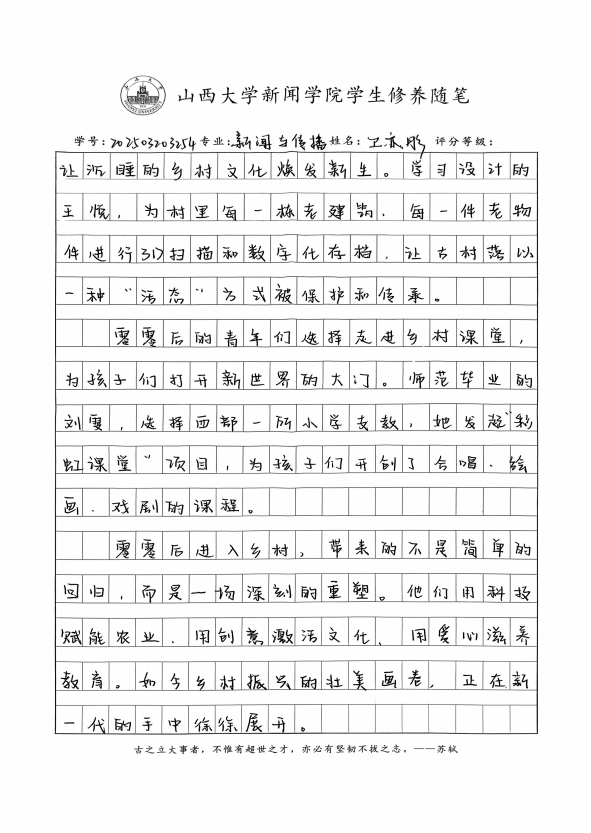 山西大学新闻学院学生修养随笔
学号:202503203254专业:新闻与传播姓名:卫亦彤 评分等级:
让沉睡的乡村文化焕发新生。学习设计的
王悦,为村里每一栋老建筑、每一件老物
件进行3D扫描和数字化存档,让古村落以
一种“活态”方式被保护和传承。
零零后的青年们选择走进乡村课堂,
为孩子们打开新世界的大门。师范毕业的
刘雯,选择西部一所小学支教,她发起“彩
虹课堂”项目,为孩子们开创了合唱、绘
画、戏剧的课程。
零零后进入乡村,带来的不是简单的
回归,而是一场深刻的重塑。他们用科技
赋能农业、用创意激活文化、用爱心滋养
教育。如今乡村振兴的壮美画卷,正在新
一代的手中徐徐展开。
古之立大事者,不惟有超世之才,亦必有坚韧不拔之志。——苏轼